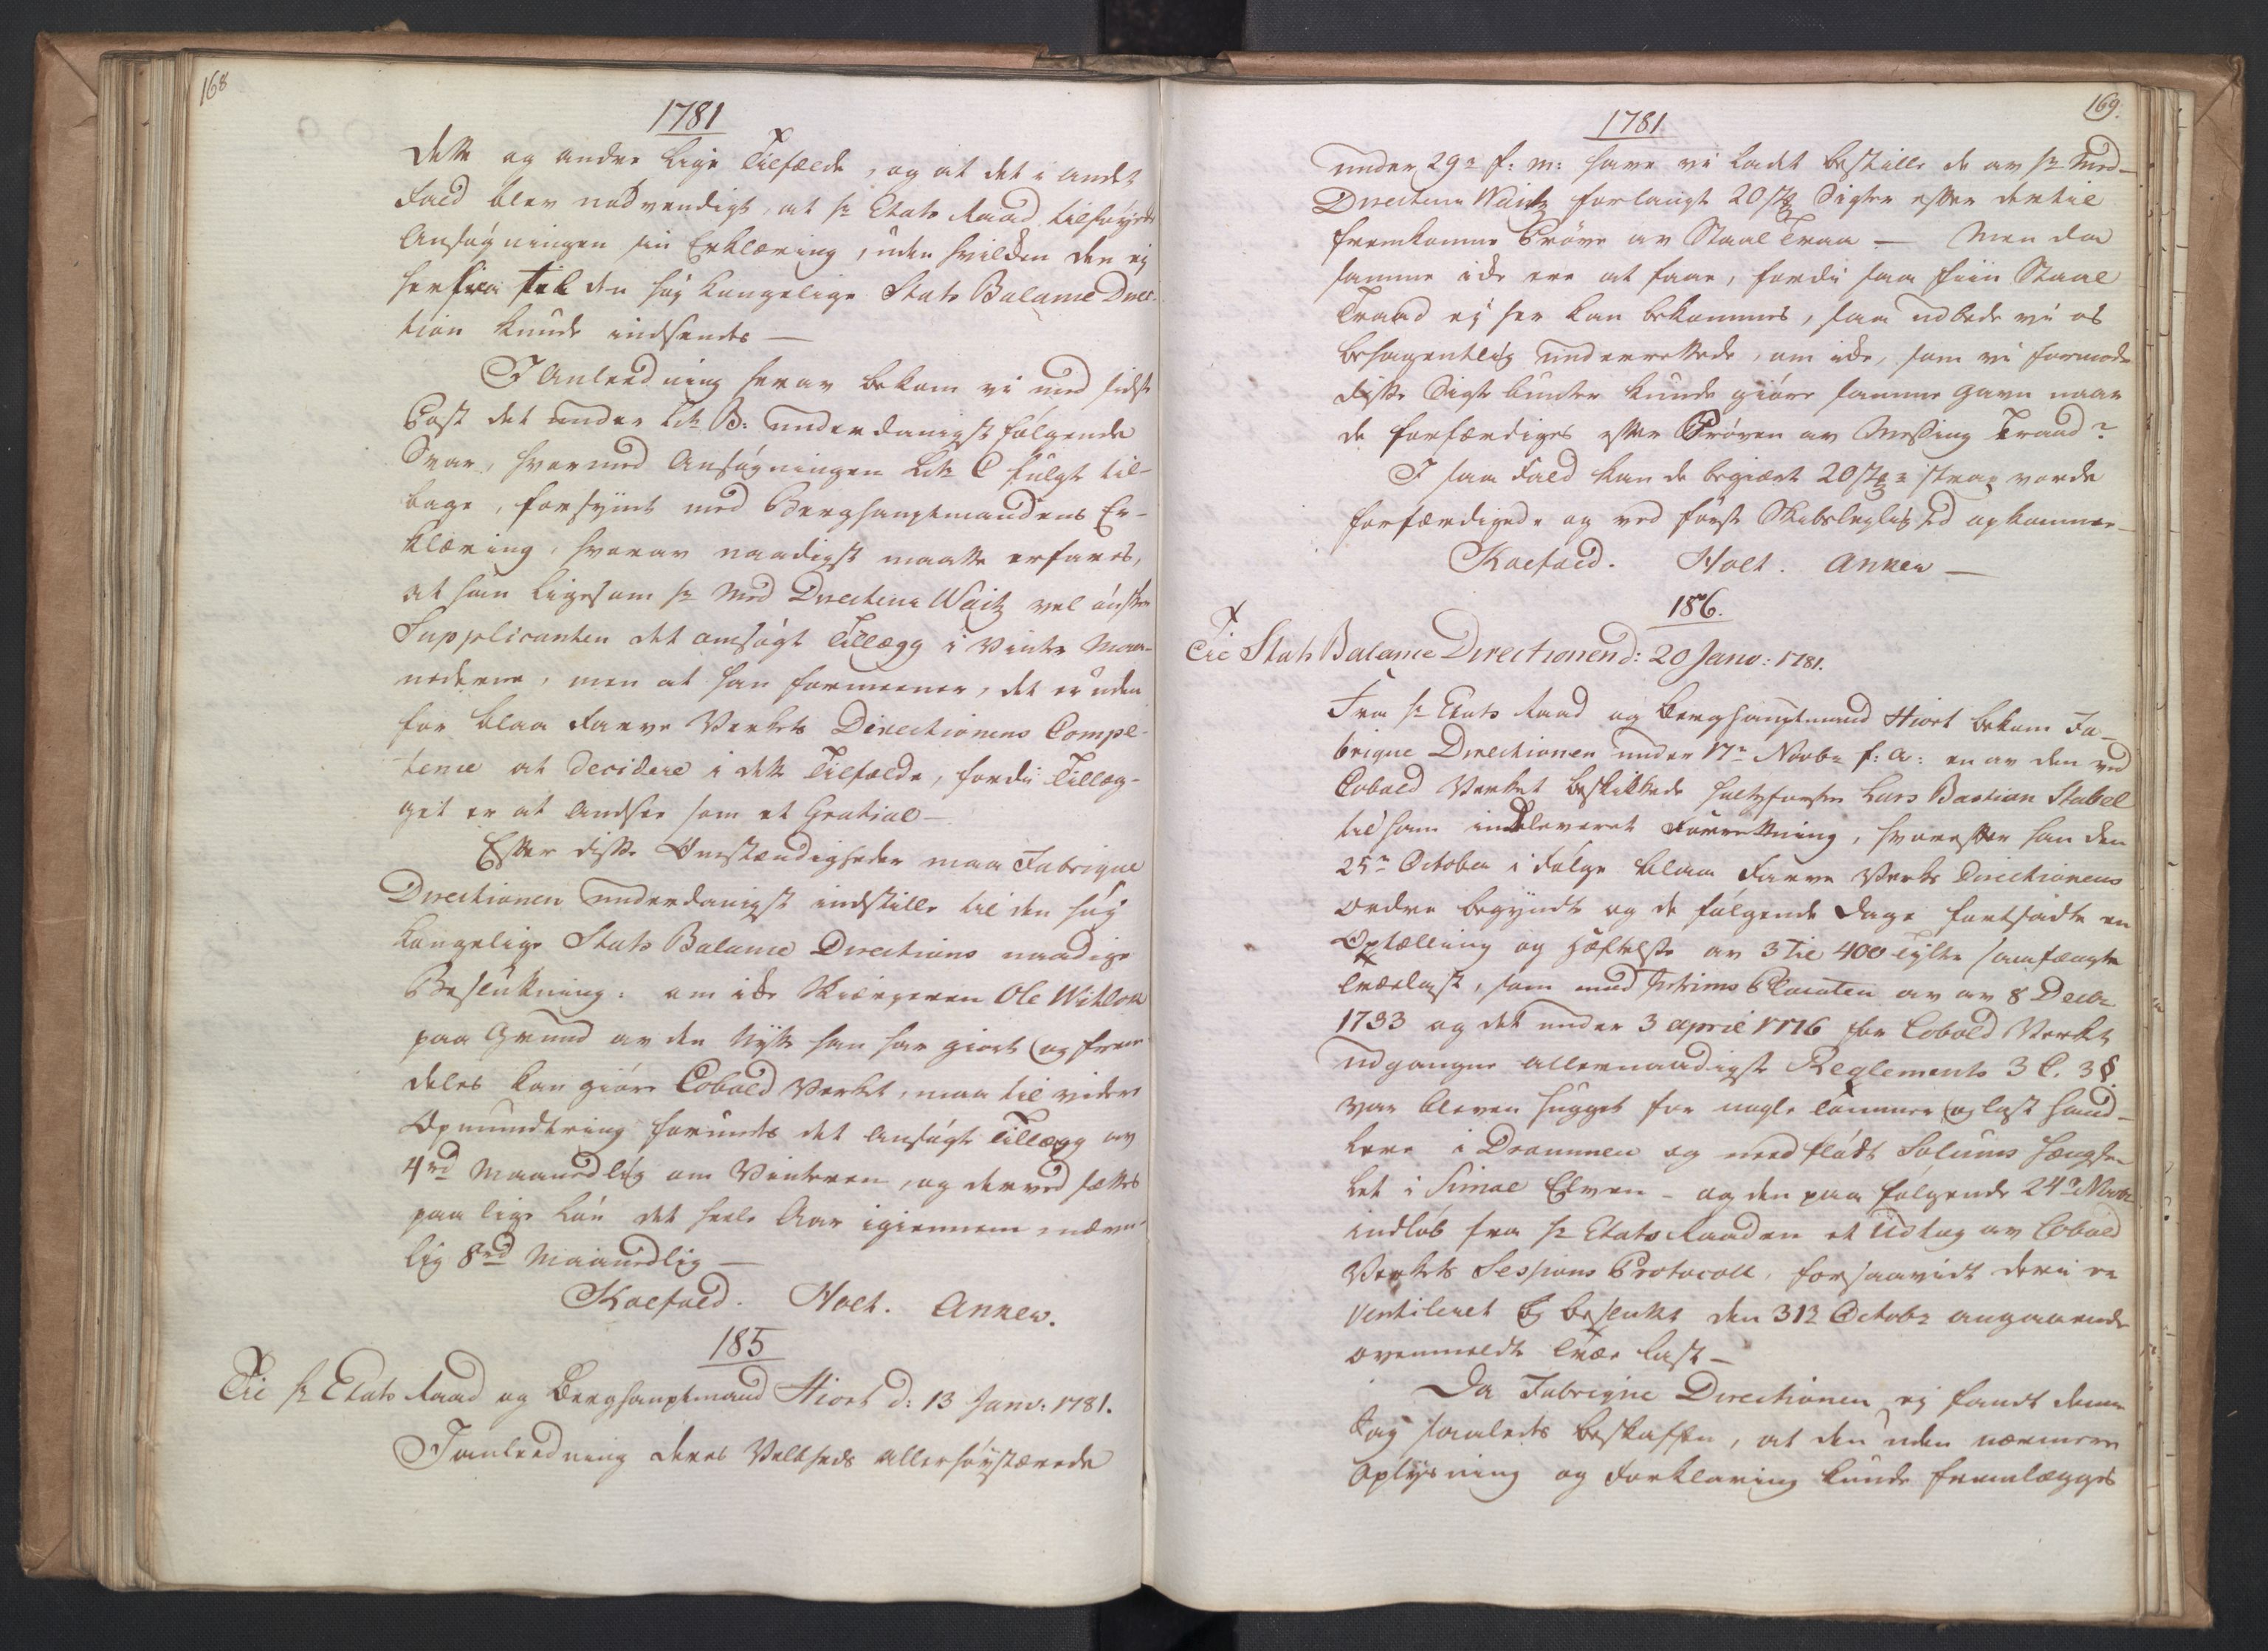 168
1781
dette og andre lige Tilfælde, og at det i andet
Fald blev nødvendigt, at Hr Etats Raad tilføyede
Ansøgningen sin Erklæring, uden hvilken den ej
herfra til den høj Kongelige Stats Balance Direc-
tion kunde indsendes —
I Anleedning herav bekom vi med sidste
Post det under Litr B: underdanigst følgende
Svar, hvormed Ansøgningen Litr C fulgte til-
bage, forsynt med Berghauptmandens Er-
klæring, hvorav naadigst maatte erfares,
at han ligesom Hr Med Directeur Waitz vel ønsker
Supplicanten det ansøgte Tillægg i Vinter Maa-
nederne, men at han formeener, det er uden
for blaa Farve Verkets Directionens Compe-
tence at decidere i dette Tilfælde, fordi Tillæg-
get er at ansee som et Gratial —
Efter disse Omstændigheder maa Fabrique
Directionen underdanigst indstille til den høj
Kongelige Stats Balance Directions naadige
Beslutning: om ikke Skiærperen Ole Withloe
paa Grund av den Nytte han har giort (og frem-
deles kan giøre Cobold Verket, maa til videre
Opmuntring forundes det ansøgte Tillægg av
4 rd Maanedlig om Vinteren, og derved sættes
paa lige Løn det heele Aar igiennem, nem-
lig 8 rd Maanedlig —
Koefoed. Holt. Anker.
185
Til Hr Etats Raad og Berghauptmand Hiort d: 13 Janv: 1781.
I anleedning deres Velbyrds allerhøystærede
169.
1781
under 29de f: m: have vi ladet bestille de av Hr Med-
Directeur Waitz forlangte 20 stk Sigter efter dertil
fremkomne Prøve av Staal Traa — Men da
samme ikke ere at faae, fordi saa fiin Staal
Traad ej her kan bekommes, saa udbede vi os
behagentlig underrettede, om ikke, som vi formode
disse Sigte bunder kunde giøre samme Gavn naar
de forfærdiges efter Prøven av Messing Traad?
I saa Fald kan de begiærte 20 stkr strax vorde
forfærdigede og ved første Skibsleylighed opkomme —
Koefoed. Holt. Anker —
186.
Til Stats Balance Directionen d: 20 Janv: 1781.
Fra Hr Etats Raad og Berghauptmand Hiort bekom Fa-
brique Directionen under 17de Novbr f: A: en av den ved
Cobold Verket beskikkede Holtzførster Lars Bastian Stabel
til ham indleveret Forretning, hvorefter han den
25de October i Følge blaa Farve Verks Directionens
Ordre begyndte og de følgende Dage fortsadte en
Optælling og Hæftelse av 3 til 400 Tylter saakaldte
Trælast, som mod Placaten av av 8 Decbr
1733 og det under 3 april 1776 for Cobold Verket
udgangne allernaadigste Reglements 3 C. 3 §
var bleven hugget for nogle Tømmer (og last Hand-
lere i Drammen og nedflødt Solums Hængsle
let i Simoe Elven — og den paa følgende 24de Novbr
indløb fra Hr Etats Raaden et Udtog av Cobold
Verkets Sessions Protocoll, forsaavidt deri er
Ventileret og besluttet den 31te Octobr angaaende
ovenmeldte Træe last —
Da Fabrique Directionen ej fandt denne
Sag saaledes beskaffen, at den uden nærmere
Oplysning og Forklaring kunde fremlægges